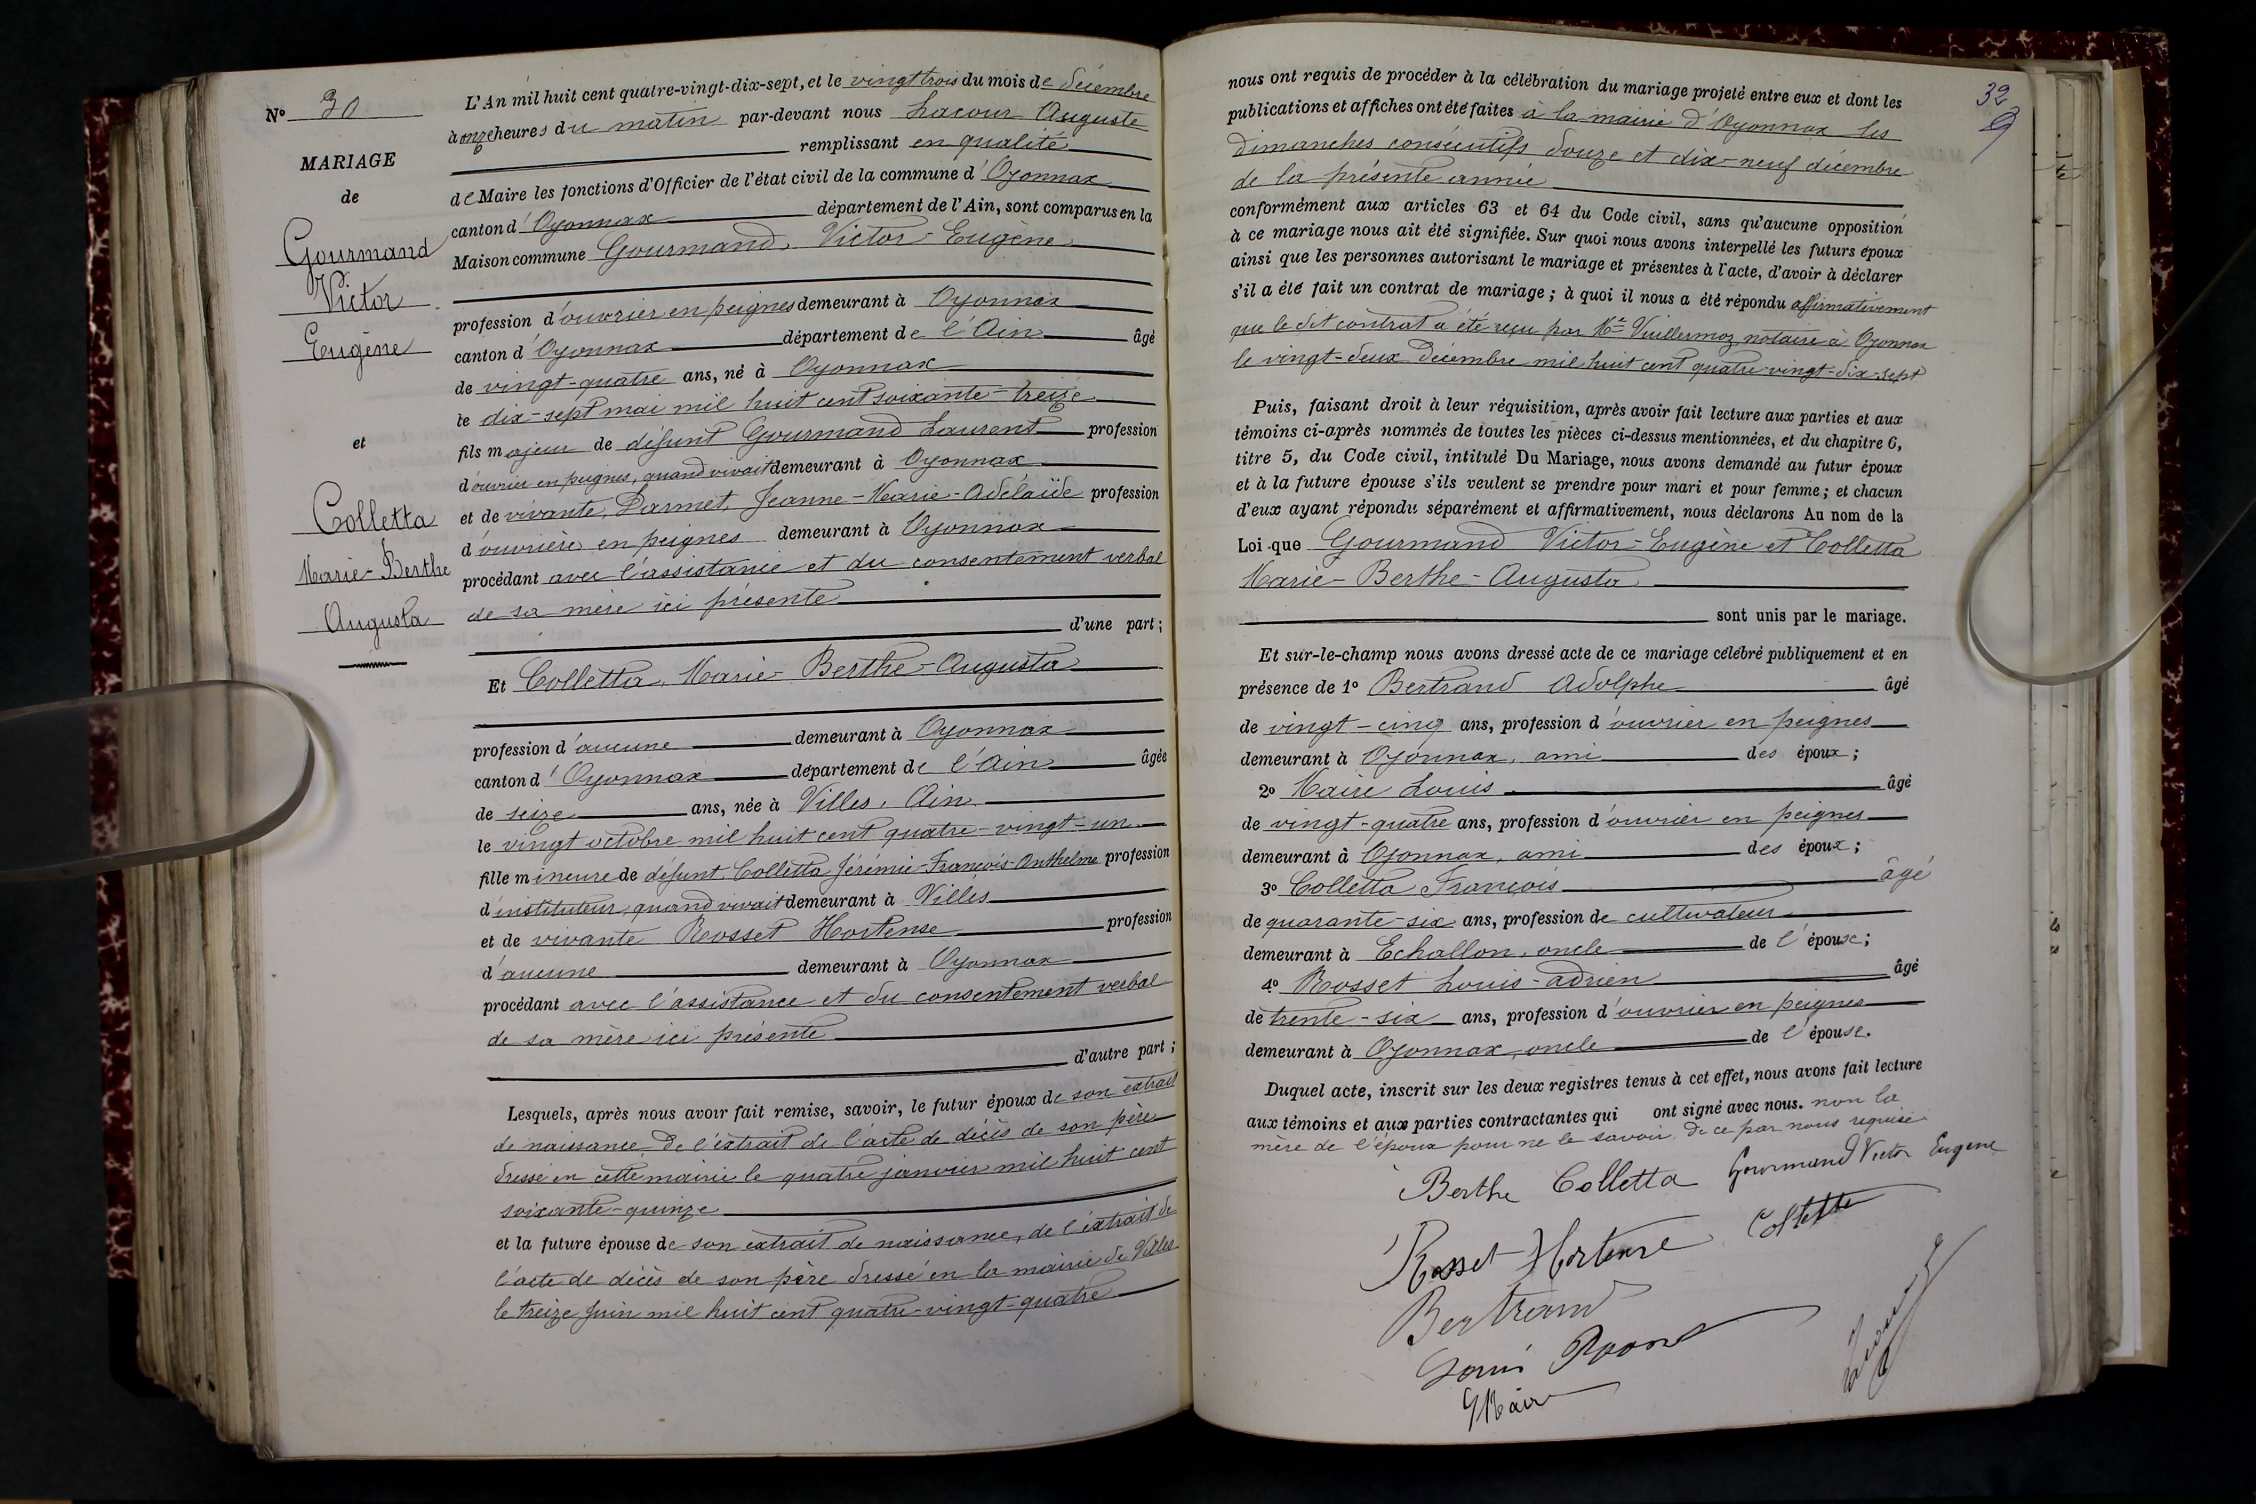 No 30
MARIAGE
de
Gourmand
Victor
Eugène
et
Colletta
Marie-Berthe
Augusta
L'An mil huit cent quatre-vingt-dix-sept, et le vingt trois du mois de décembre
à onze heures du matin par-devant nous Lacour Auguste
remplissant en qualité
de Maire les fonctions d'Officier de l'état civil de la commune d'Oyonnax
canton d'Oyonnax département de l'Ain, sont comparus en la
Maison commune Gourmand, Victor-Eugène
profession d'ouvrier en peignes demeurant à Oyonnax
canton d'Oyonnax département de l'Ain âgé
de vingt-quatre ans, né à Oyonnax
le dix-sept mai mil huit cent soixante-treize
fils majeur de défunt Gourmand Laurent profession
d'ouvrier en peignes, quand vivait demeurant à Oyonnax
et de vivante, Darmet, Jeanne-Marie-Adélaïde profession
d'ouvrière en peignes demeurant à Oyonnax
procédant avec l'assistance et du consentement verbal
de sa mère ici présente
d'une part;
Et Colletta, Marie-Berthe-Augusta
profession d'aucune demeurant à Oyonnax
canton d'Oyonnax département de l'Ain âgée
de seize ans, née à Villes, Ain
le vingt octobre mil huit cent quatre-vingt-un
fille mineure de défunt Colletta Jérémie-François-Anthelme profession
d'instituteur, quand vivait demeurant à Villes
et de vivante Rosset Hortense profession
d'aucune demeurant à Oyonnax
procédant avec l'assistance et du consentement verbal
de sa mère ici présente
d'autre part;
Lesquels, après nous avoir fait remise, savoir, le futur époux de son extrait
de naissance, De l'extrait de l'acte de décès de son père
dressé en cette mairie le quatre janvier mil huit cent
soixante-quinze
et la future épouse de son extrait de naissance, de l'extrait de
l'acte de décès de son père dressé en la mairie de Villes
le treize Juin mil huit cent quatre-vingt-quatre
32
nous ont requis de procéder à la célébration du mariage projeté entre eux et dont les
publications et affiches ont été faites à la mairie d'Oyonnax les
dimanches consécutifs douze et dix-neuf décembre
de la présente année
conformément aux articles 63 et 64 du Code civil, sans qu'aucune opposition
à ce mariage nous ait été signifiée. Sur quoi nous avons interpellé les futurs époux
ainsi que les personnes autorisant le mariage et présentes à l'acte, d'avoir à déclarer
s'il a été fait un contrat de mariage; à quoi il nous a été répondu affirmativement
que le dit contrat a été reçu par Me Vuillermoz notaire à Oyonnax
le vingt-deux Décembre mil huit cent quatre-vingt-dix-sept
Puis, faisant droit à leur réquisition, après avoir fait lecture aux parties et aux
témoins ci-après nommés de toutes les pièces ci-dessus mentionnées, et du chapitre 6,
titre 5, du Code civil, intitulé Du Mariage, nous avons demandé au futur époux
et à la future épouse s'ils veulent se prendre pour mari et pour femme; et chacun
d'eux ayant répondu séparément et affirmativement, nous déclarons Au nom de la
Loi que Gourmand Victor-Eugène et Colletta
Marie-Berthe-Augusta
sont unis par le mariage.
Et sur-le-champ nous avons dressé acte de ce mariage célébré publiquement et en
présence de 1o Bertrand Adolphe âgé
de vingt-cinq ans, profession d'ouvrier en peignes
demeurant à Oyonnax, ami des époux;
2o Maire Louis âgé
de vingt-quatre ans, profession d'ouvrier en peignes
demeurant à Oyonnax, ami des époux;
3o Colletta François âgé
de quarante-six ans, profession de cultivateur
demeurant à Echallon, oncle de l'épouse;
4o Rosset Louis-adrien âgé
de trente-six ans, profession d'ouvrier en peignes
demeurant à Oyonnax, oncle de l'épouse.
Duquel acte, inscrit sur les deux registres tenus à cet effet, nous avons fait lecture
aux témoins et aux parties contractantes qui ont signé avec nous. non la
mère de l'époux pour ne le savoir, de ce par nous requise
Berthe Colletta Gourmand Victor Eugene
Rosset Hortense Colletta
Bertrand
Louis
Maire